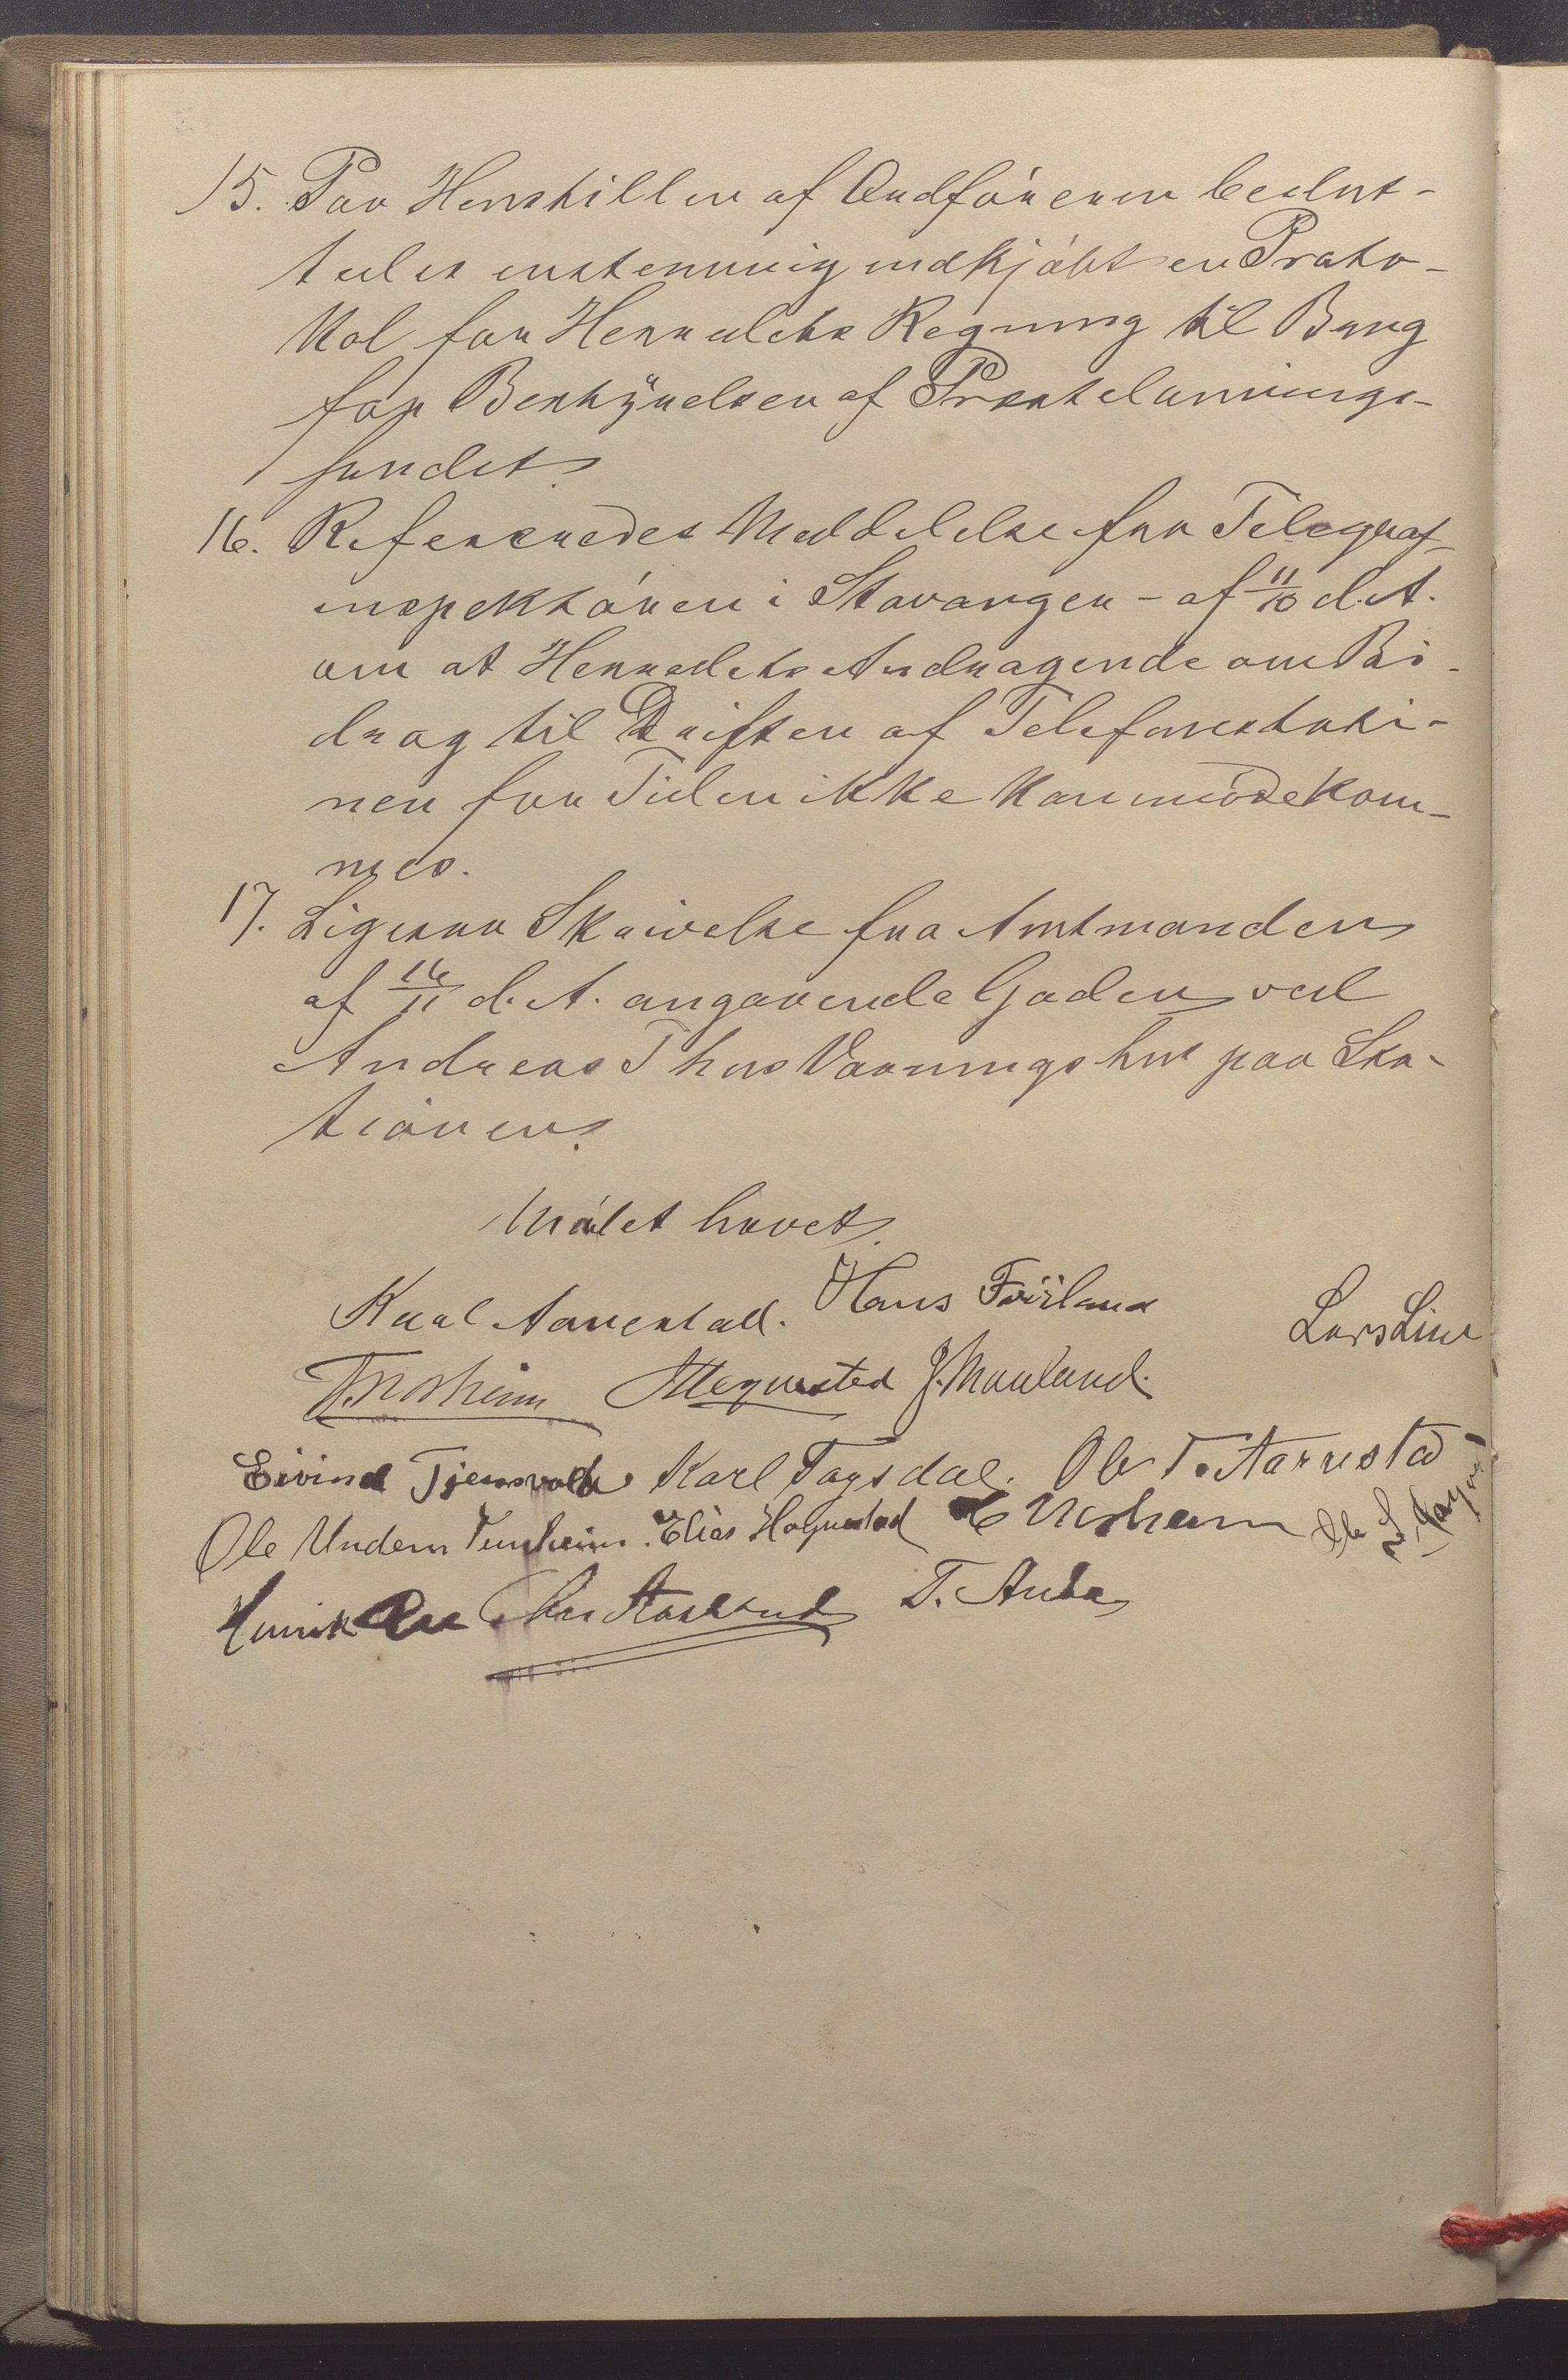 15. Paa Henstillen af Ordføreren beslut-
tedes enstemmig indkjøbt en Proto-
kol for Herredets Regning til Brug
for Bestyrelsen af Præstelønnings-
fondet.
16. Refereredes Meddelelse fra Telegraf-
inspektøren i Stavanger - af 11/10 d. A.
om at Herredets Andragende om Bi-
drag til Driften af Telefonstatio-
nen for Tiden ikke kan imødekom-
mes.
17. Ligesaa Skrivelse fra Amtmanden
af 16/11 d. A. angaaende Gaden ved
Andreas Thus Vaaningshus paa Sta-
tionen.
Mødet hævet.
Karl Aarrestad. Hans Fôrland Lars Line
Hognestad J. Mauland.
Eivind Tjensvold Karl Tagsdal. Ole T. Aarrestad
Ole Undem Tunheim. Elias Hognestad Norheim Ole
Henrik T. Auda